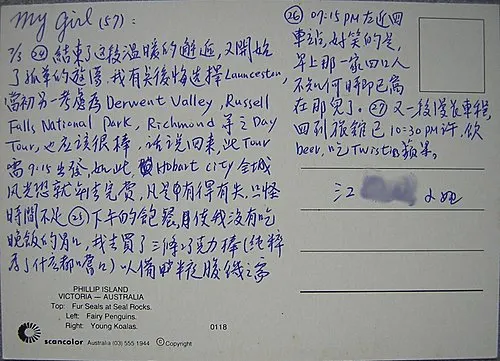 My Girl (57):
7/3 (24) 結束了這段溫暖的邂逅，又開始
了孤單的旅湯。我有失後悔選擇Launceston,
當初另一考慮為Derwent Valley, Russell
Falls National Park, Richmond 等之Day
Tour, 也應該很棒，話說回來，此Tour
需9:15出發，如此，Hobart City 全城
風光恐就無法完覽，凡是有得有失，只怪
時間不夠 (25) 下午的飽餐，使我沒有吃
晚飯的胃口，我去買了三條巧克力棒(純粹
為了什麼都嚐口) 以備半夜腹饑之需
(26) 07:15 PM 左近回
車站，好笑的是，
早上那一家四口人
不知何時即已窩
在那兒了。(27) 又一段漫長車程，
回到旅館已10:30 PM許，飲
beer, 吃Twisties 蘋果。
江 小姐
PHILLIP ISLAND
VICTORIA — AUSTRALIA
Top: Fur Seals at Seal Rocks.
Left: Fairy Penguins.
Right: Young Koalas.
0118
scancolor Australia (03) 555 1944 © Copyright